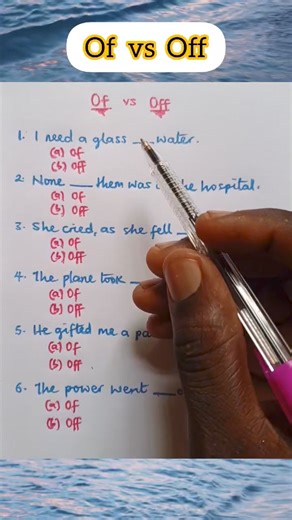 Of vs Off
Of vs Off
1. I need a glass __ water.
(a) Of
(b) Off
2. None __ them was the hospital.
(a) Of
(b) Off
3. She cried, as she fell _
(a) Of
(b) Off
4. The plane took _
(a) Of
(b) Off
5. He gifted me a
(a) Of
(b) Off
6. The power went __
(a) Of
(b) Off